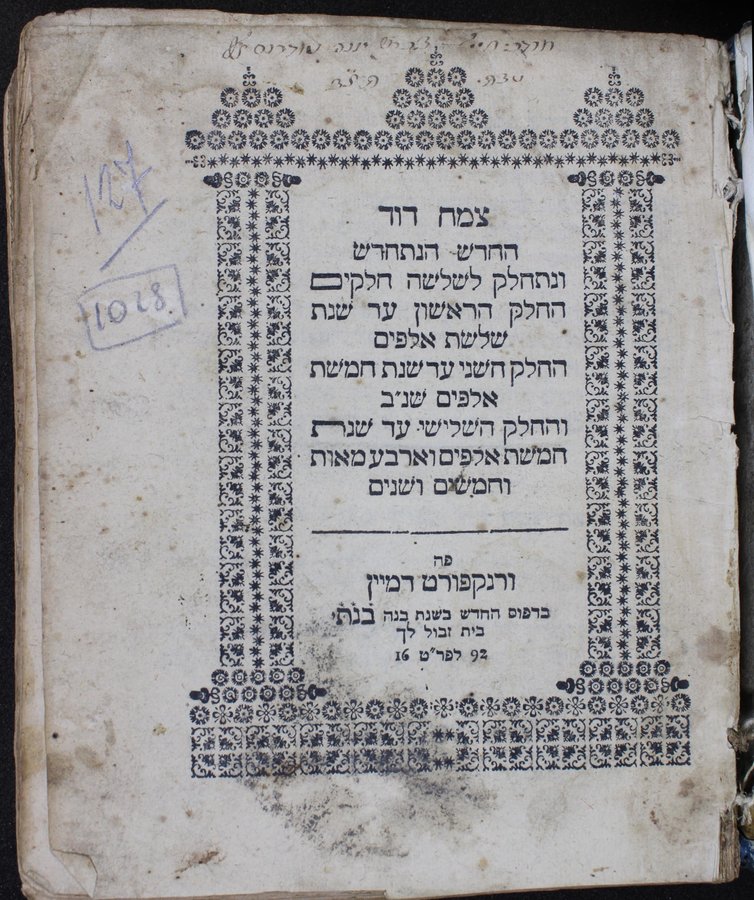 127
1028
צמח דוד
החדש הנתחדש
ונתחלק לשלשה חלקים
החלק הראשון עד שנת
שלשת אלפים
החלק השני עד שנת חמשת
אלפים שנ״ב
והחלק השלישי עד שנת
חמשת אלפים וארבע מאות
וחמשים ושנים
פה
ורנקפורט דמיין
בדפוס החדש בשנת בנה בנתי
בית זבול לך
92 לפר״ט 16